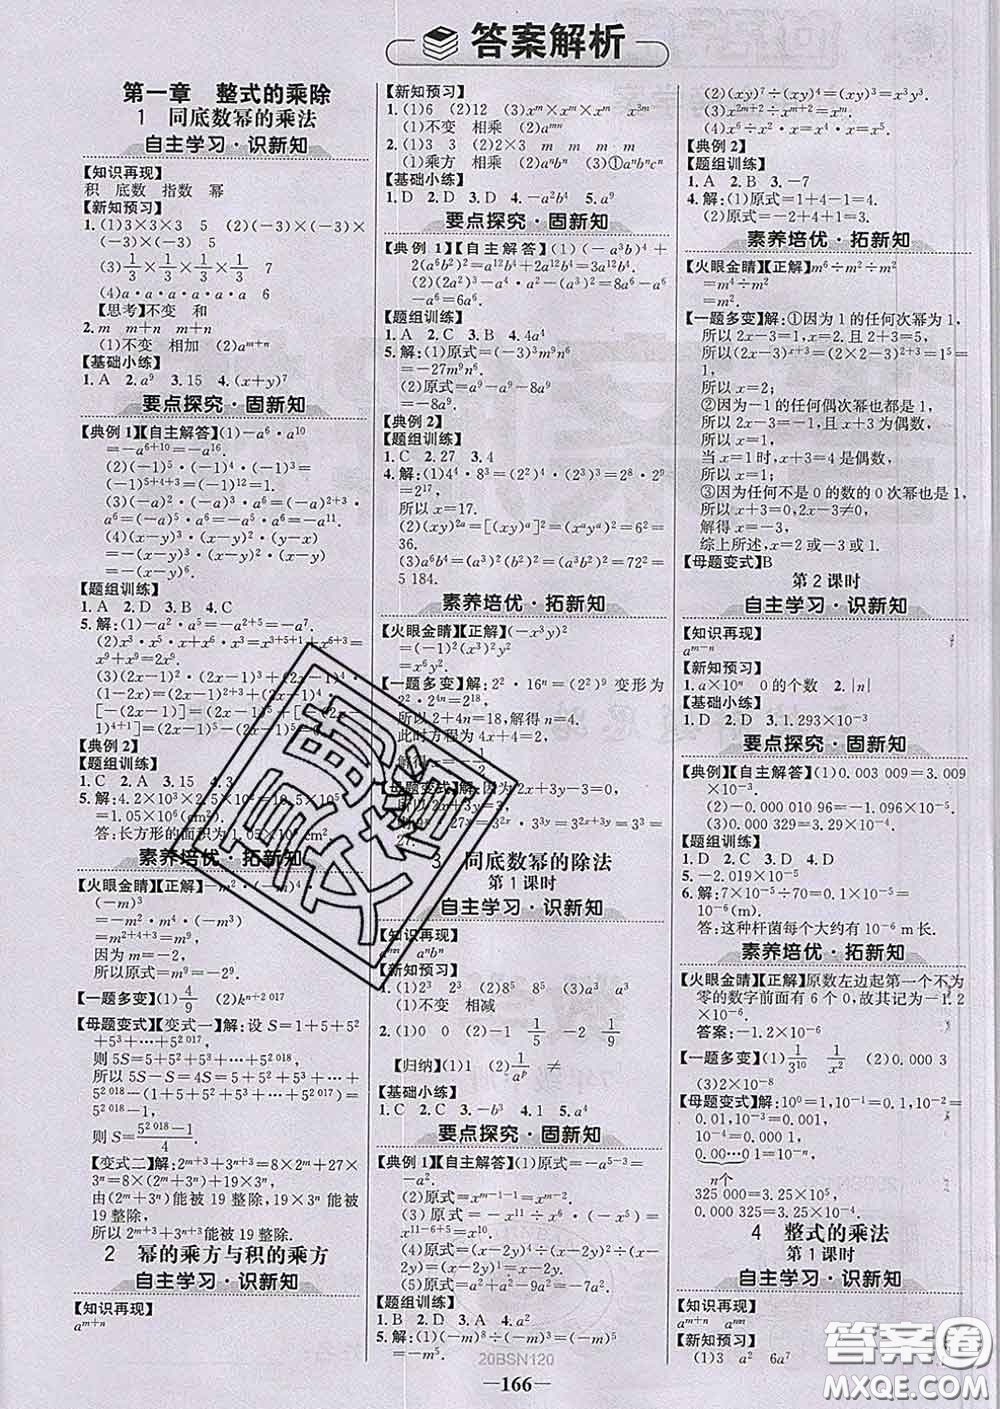 答案解析
第一章 整式的乘除
1 同底数幂的乘法
自主学习·识新知
【知识再现】
积 底数 指数 幂
【新知预习】
1.(1)3×3×3 5 (2)(-3)×(-3)×
(-3)×(-3)×(-3) 5
(3)1/3×1/3×1/3×1/3 7
(4)a·a·a·a·a 6
【思考】不变 和
2.m m+n m+n
(1)不变 相加 (2)a^{m+n}
【基础小练】
1.A 2.a^9 3.15 4.(x+y)^7
要点探究·固新知
【典例1】【自主解答】(1)-a^6·a^{10}
=-a^{6+10}=-a^{16}.
(2)(-1)^5·(-1)^4·(-1)^3=
(-1)^{5+4+3}=(-1)^{12}=1.
(3)(-a)^2·(-a)^3·a^6=(-a)^{2+3}·
a^6=(-a)^5·a^6=-a^5·a^6=-a^{11}.
(4)(x-y)(x-y)^2·(y-x)^3=
-(x-y)·(x-y)^2·(x-y)^3=
-(x-y)^6.
【题组训练】
1.A 2.D 3.B 4.C
5.解:(1)-a^2·a^5=-a^{2+5}=-a^7.
(2)x^3·x^5·x+x^6·x^3=x^{3+5+1}+x^{6+3}=
x^9+x^9=2x^9.
【典例2】
【题组训练】
1.C 2.A 3.15 4.3
=1.05×10^6(cm^2).
答:长方形的面积为1.05×10^6 cm^2.
素养培优·拓新知
【火眼金睛】【正解】-m^2·m^4·
(-m)^3
=-m^2·m^4·(-m^3)
=m^{2+4+3}=m^9.
因为m=-2.
所以原式=m^9=-2^9.
【一题多变】(1)4/9 (2)k^{n+2 017}
【母题变式】【变式一】解:设S=1+5+5^2
+5^3+…+5^{2 017},
则5S=5+5^2+5^3+…+5^{2 018},
所以5S-S=4S=(5+5^2+5^3+…+
5^{2 018}-(1+5+5^2+5^3+…+5^{2 017})=
5^{2 018}-1,
所以S=(5^{2 018}-1)/4.
【变式二】解:2^{m+3}+3^{n+3}=8×2^m+27
×3^n=8×(2^m+3^n)+19×3^n,
由(2^m+3^n)能被19整除,19×3^n能被
19整除,
所以2^{m+3}+3^{n+3}能被19整除.
2 幂的乘方与积的乘方
自主学习·识新知
【知识再现】
a^{m+n}
【新知预习】
1.(1)6 (2)12 (3)x^m×x^m×x^m x^{3m}
(1)不变 相乘 (2)a^{mn}
2.(1)3 3 (2)2×3 m m m m
(1)乘方 相乘 (2)a^nb^n (3)①a^nb^nc^n
【基础小练】
1.D 2.D 3.D 4.-a^2b^4 5.a^9
要点探究·固新知
【典例1】【自主解答】(1)(-a^3b)^4+
2(a^6b^2)^2=a^{12}b^4+2a^{12}b^4=3a^{12}b^4.
(2)(2a^2)^3-a^4·a^2-(-a^3)^2=8a^6-a^6
-a^6=6a^6.
【题组训练】
1.A 2.C 3.B 4.4a^4
5.解:(1)原式=(-3)^3m^9n^6
=-27m^9n^6.
(2)原式=a^9-a^9-8a^9
=-8a^9.
【典例2】
【题组训练】
1.C 2.27 3.4
4.解:(1)4^4·8^3=(2^2)^4·(2^3)^3=2^8·2^9
=2^{17},
所以x=17.
(2)(xy)^{2a}=[(xy)^a]^2=(x^ay^a)^2=6^2=
36.
(3)a^6b^4=(a^3b^2)^2=(a^3b^2)^2=72^2=
5 184.
素养培优·拓新知
【火眼金睛】【正解】(-x^3y)^2
=(-1)^2(x^3)^2y^2
=x^6y^2.
【一题多变】解:2^2·16^n=(2^2)^9变形为
2^2·2^{4n}=2^{18},
所以2+4n=18,解得n=4.
【母题变式】解:因为2x+3y-3=0,
所以2x+3y=3,
3 同底数幂的除法
第1课时
自主学习·识新知
【知识再现】
a^m a^nb^n
【新知预习】
1.(1)2^3 2^3 (2)8^5 8^5 (3)a^5 a^5
(1)不变 相减
2.(1)0 0 (2)-1 1/5 -9 -2
【归纳】(1)1 (2)1/a^p 1/a^p
【基础小练】
1.C 2.C 3.-b^3 4.1 5.a^4
要点探究·固新知
【典例1】【自主解答】(1)原式=-a^{5-3}=
-a^2.
(2)原式=x^{m-1-1}=x^{m-2}.
(3)原式=-x^{11}÷(-x)^6·(-x^5)=
x^{11-6+5}=x^{10}.
(4)原式=(x-2y)^4÷(x-2y)^2÷
(x-2y)=x-2y.
(5)原式=a^2+a^2-9a^2=-7a^2.
【题组训练】
1.B 2.D 3.D 4.A
5.解:(1)(-m)^8÷(-m)^3=(-m)^5
=-m^5.
(2)(xy)^7÷(xy)^4=(xy)^3=x^3y^3.
(3)x^{2m+2}÷x^{m+2}=x^m.
(4)x^6÷x^2·x=x^4·x=x^5.
【典例2】
【题组训练】
1.A 2.B 3.-7
4.解:(1)原式=1+4-1=4.
(2)原式=-2+4+1=3.
素养培优·拓新知
【火眼金睛】【正解】m^6÷m^2÷m^2
=m^4÷m^2
=m^2.
【一题多变】解:①因为1的任何次幂为1,
所以2x-3=1,x=2.且2+3=5,
所以(2x-3)^{x+3}=(2×2-3)^{2+3}=1^5=1,
所以x=2;
②因为-1的任何偶次幂也都是1,
所以2x-3=-1,且x+3为偶数,
所以x=1,
当x=1时,x+3=4是偶数,
所以x=1;
③因为任何不是0的数的0次幂也是1,
所以x+3=0,2x-3≠0,
解得x=-3,
综上所述,x=2或-3或1.
【母题变式】B
第2课时
自主学习·识新知
【知识再现】
a^{m-n}
【新知预习】
1.a×10^n 0的个数 2.|n|
【基础小练】
1.D 2.D 3.D 4.1.293×10^{-3}
要点探究·固新知
【典例】【自主解答】(1)0.003 009=3.009
×10^{-3}.
(2)-0.000 010 96=-1.096×10^{-5}.
(3)0.000 329=3.29×10^{-4}.
【题组训练】
1.D 2.D 3.C 4.B
5.-2.019×10^{-5}
6.解:7×10^{-5}÷70=0.1×10^{-5}=
10^{-6}(m).
答:这种杆菌每个大约有10^{-6} m长.
素养培优·拓新知
【火眼金睛】【正解】原数左边起第一个不为
零的数字前面有6个0,故其记为-1.2
×10^{-6}.
答案:-1.2×10^{-6}
【一题多变】(1)1/3^{10} 1/x^2 (2)0.000 3
(3)2×10^{-8}
【母题变式】解:10^0=1,10^{-1}=0.1,10^{-2}=
0.01,10^{-3}=0.001,
10^{-4}=0.000 1,…,10^{-n}=
0.00…01,
n个
325 000=3.25×10^5,
0.000 325=3.25×10^{-4}.
4 整式的乘法
第1课时
自主学习·识新知
【知识再现】
a^{m+n} a^{mn} a^nb^n
【新知预习】
1.(1)3 a^2 6a^7
20BSN120
—166—
答案卷
MXQE.COM